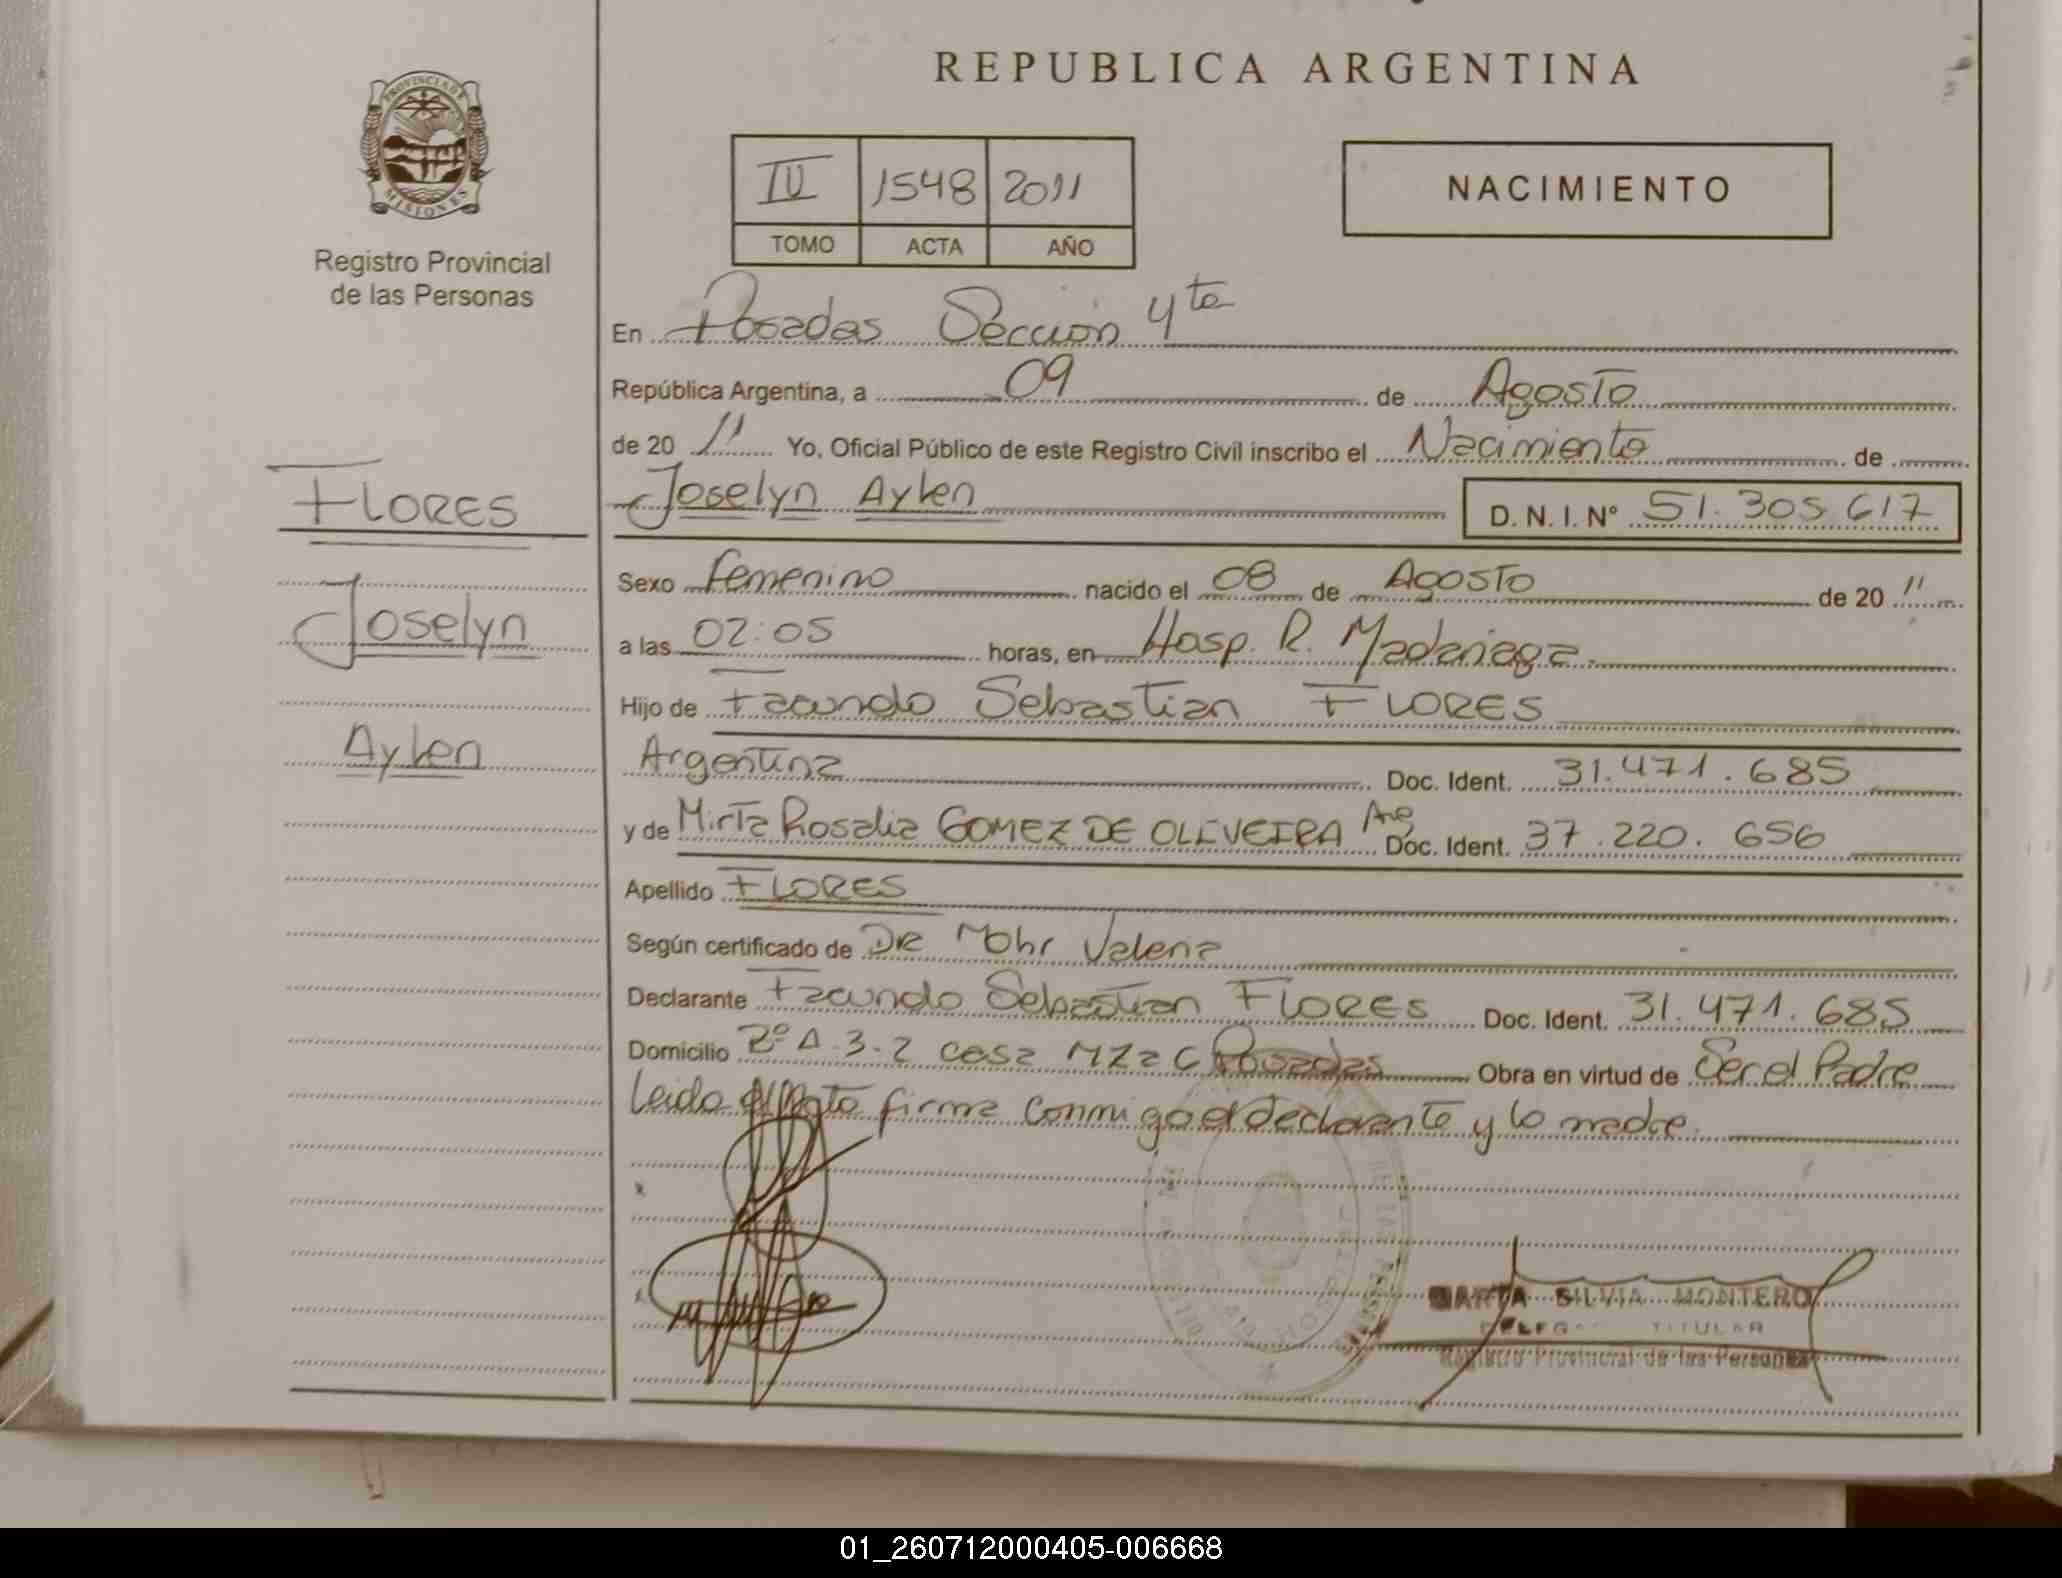 REPUBLICA ARGENTINA
PROVINCIA DE
MISIONES
Registro Provincial
de las Personas
IV 1548 2011
TOMO ACTA AÑO
NACIMIENTO
En Posadas Sección 4ta
República Argentina, a 09 de Agosto
de 20 11 Yo, Oficial Público de este Registro Civil inscribo el Nacimiento de
Joselyn Aylen D. N. I. N° 51.305.617
FLORES
Joselyn
Aylen
Sexo femenino nacido el 08 de Agosto de 20 11
a las 02:05 horas, en Hosp. R. Madariaga
Hijo de Facundo Sebastian FLORES
Argentina Doc. Ident. 31.471.685
y de Mirta Rosalia GOMEZ DE OLIVEIRA Arg Doc. Ident. 37.220.656
Apellido FLORES
Según certificado de DR Mohr Valeria
Declarante Facundo Sebastian FLORES Doc. Ident. 31.471.685
Domicilio A.3-2 casa MZa C Posadas Obra en virtud de Ser el Padre
Leido el Acto firma conmigo el declarante y la madre.
MARTA SILVIA MONTERO
TITULAR
Registro Provincial de las Personas
01_260712000405-006668